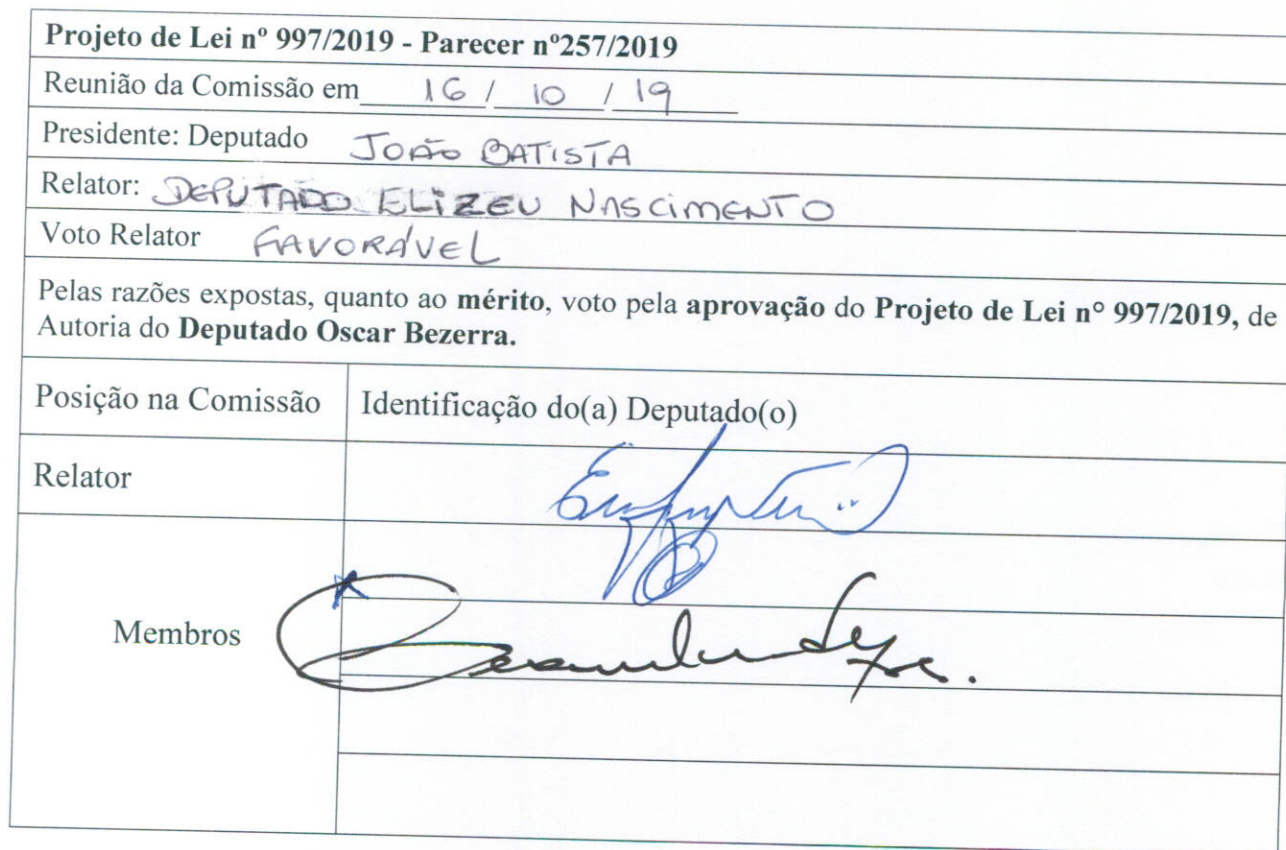 Projeto de Lei nº 997/2019 - Parecer nº257/2019
Reunião da Comissão em 16 / 10 / 19
Presidente: Deputado JOÃO BATISTA
Relator: DEPUTADO ELIZEU NASCIMENTO
Voto Relator FAVORÁVEL
Pelas razões expostas, quanto ao mérito, voto pela aprovação do Projeto de Lei nº 997/2019, de
Autoria do Deputado Oscar Bezerra.
Posição na Comissão Identificação do(a) Deputado(o)
Relator
Membros